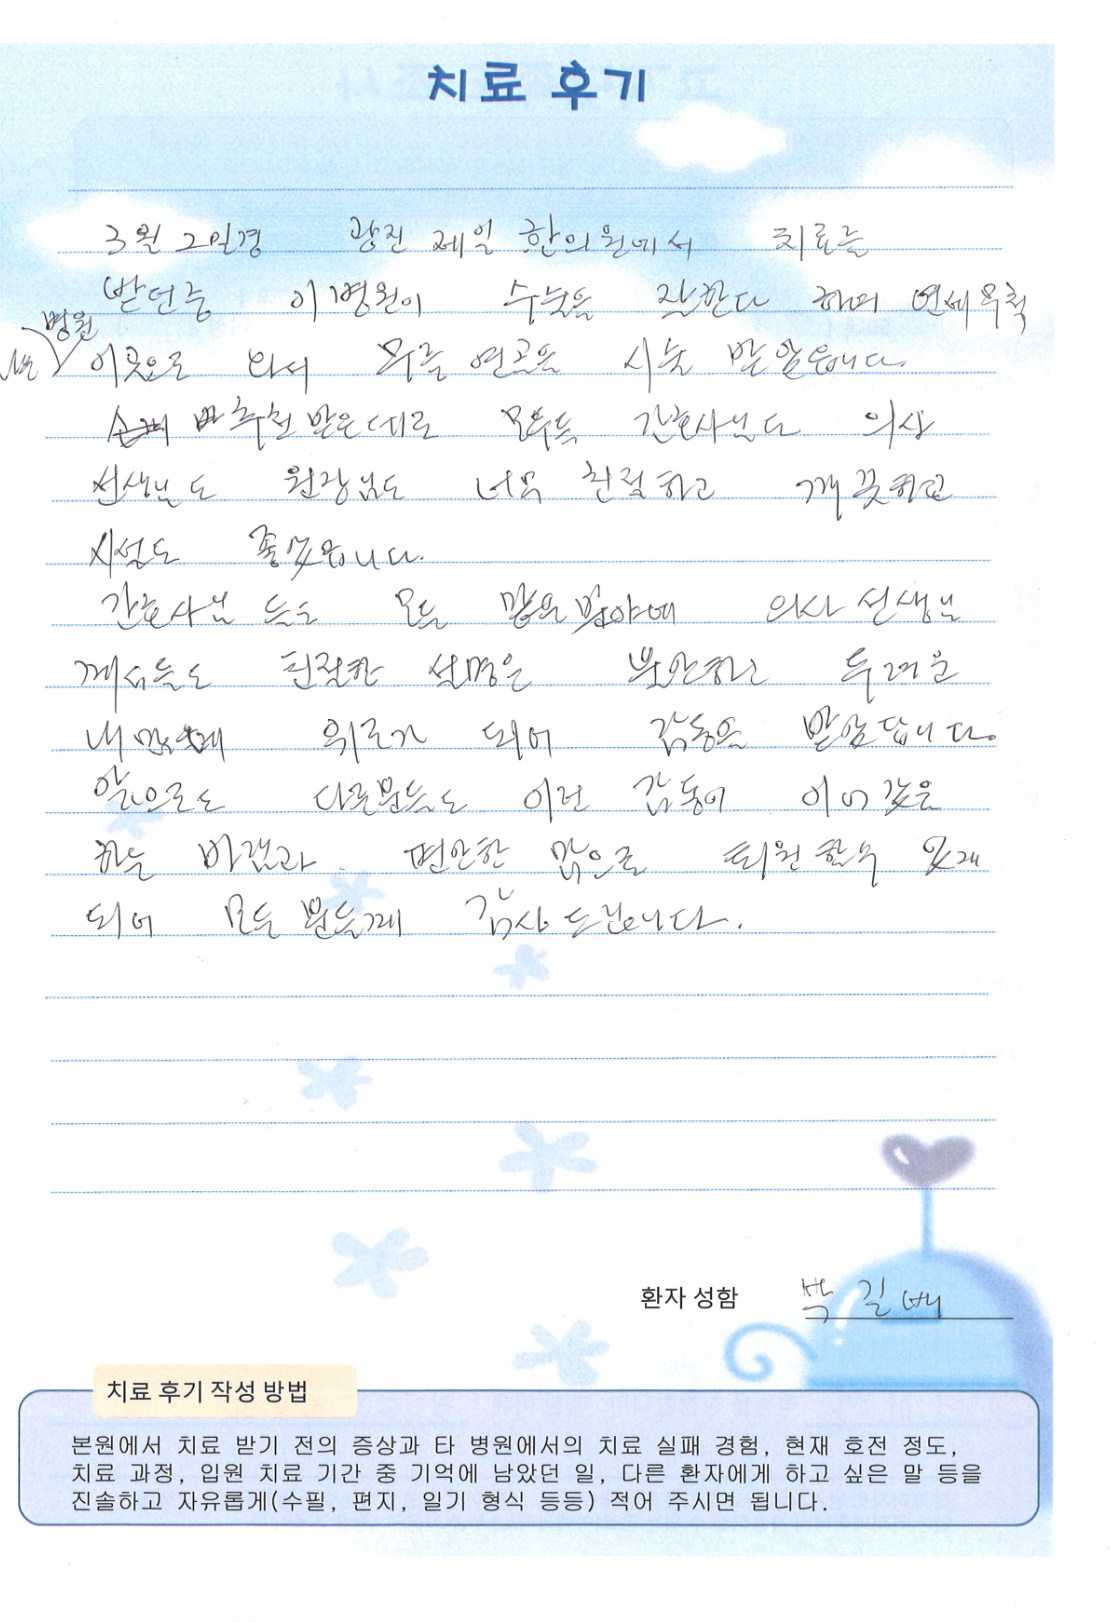 치료 후기
3월 2일경 광진 제일 한의원에서 치료를
받던중 이병원이 수술을 잘한다 하며 연세무척
병원
이곳으로 와서 무릎 연골을 시술 받았읍니다.
추천 받은대로 모두들 간호사님도 의사
선생님도 원장님도 너무 친절하고 깨끗하고
시설도 좋았읍니다.
간호사님 들도 모든 의사 선생님
께서들도 친절한 설명은 불안하고 두려운
내 위로가 되어 감동을 받았답니다.
앞으로도 다른분들도 이런 감동이 이어
하는 바램과 편안한 맘으로 퇴원할수 있게
되어 모든 분들께 감사 드립니다.
환자 성함 박길배
치료 후기 작성 방법
본원에서 치료 받기 전의 증상과 타 병원에서의 치료 실패 경험, 현재 호전 정도,
치료 과정, 입원 치료 기간 중 기억에 남았던 일, 다른 환자에게 하고 싶은 말 등을
진솔하고 자유롭게(수필, 편지, 일기 형식 등등) 적어 주시면 됩니다.